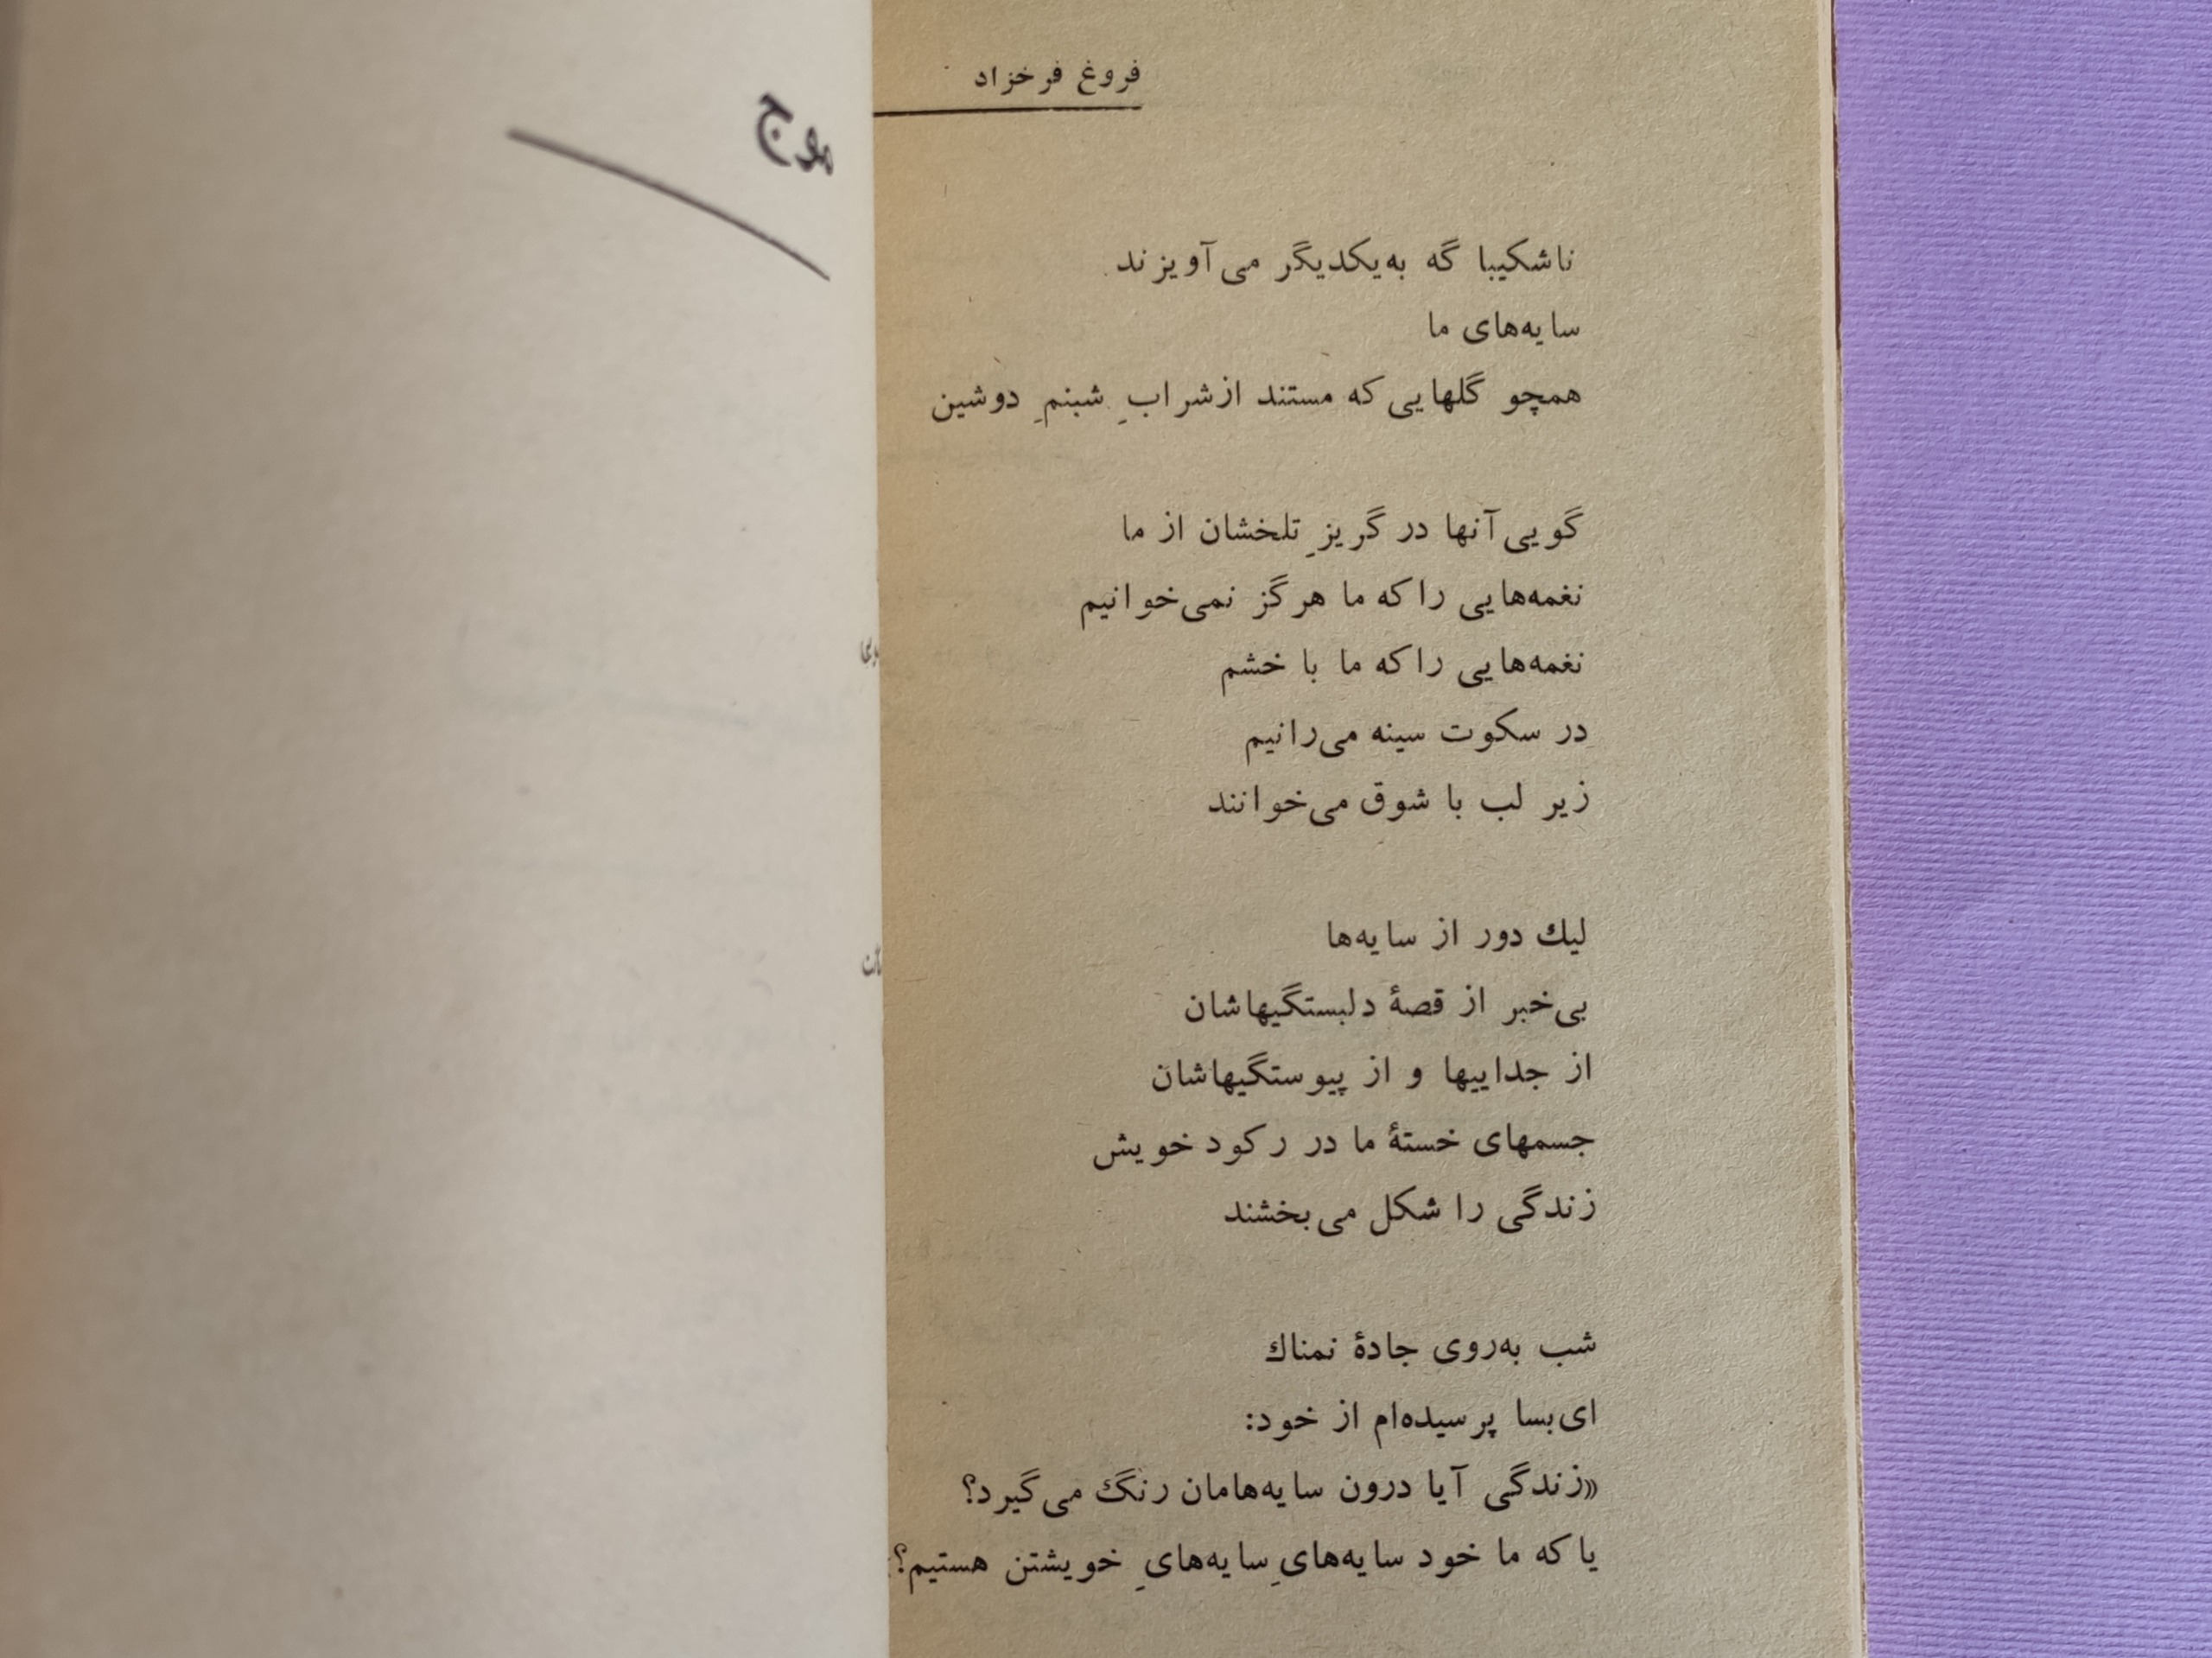 فروغ فرخزاد
ناشکیبا گه به‌یکدیگر می‌آویزند
سایه‌های ما
همچو گلهایی که مستند ازشرابِ شبنمِ دوشین
گویی آنها در گریزِ تلخشان از ما
نغمه‌هایی را که ما هرگز نمی‌خوانیم
نغمه‌هایی را که ما با خشم
در سکوت سینه می‌رانیم
زیر لب با شوق می‌خوانند
لیك دور از سایه‌ها
بی‌خبر از قصهٔ دلبستگیهاشان
از جداییها و از پیوستگیهاشان
جسمهای خستهٔ ما در رکود خویش
زندگی را شکل می‌بخشند
شب به‌روی جادهٔ نمناك
ای‌بسا پرسیده‌ام از خود:
«زندگی آیا درون سایه‌هامان رنگ می‌گیرد؟
یا که ما خود سایه‌هایِ سایه‌هایِ خویشتن هستیم؟
موج